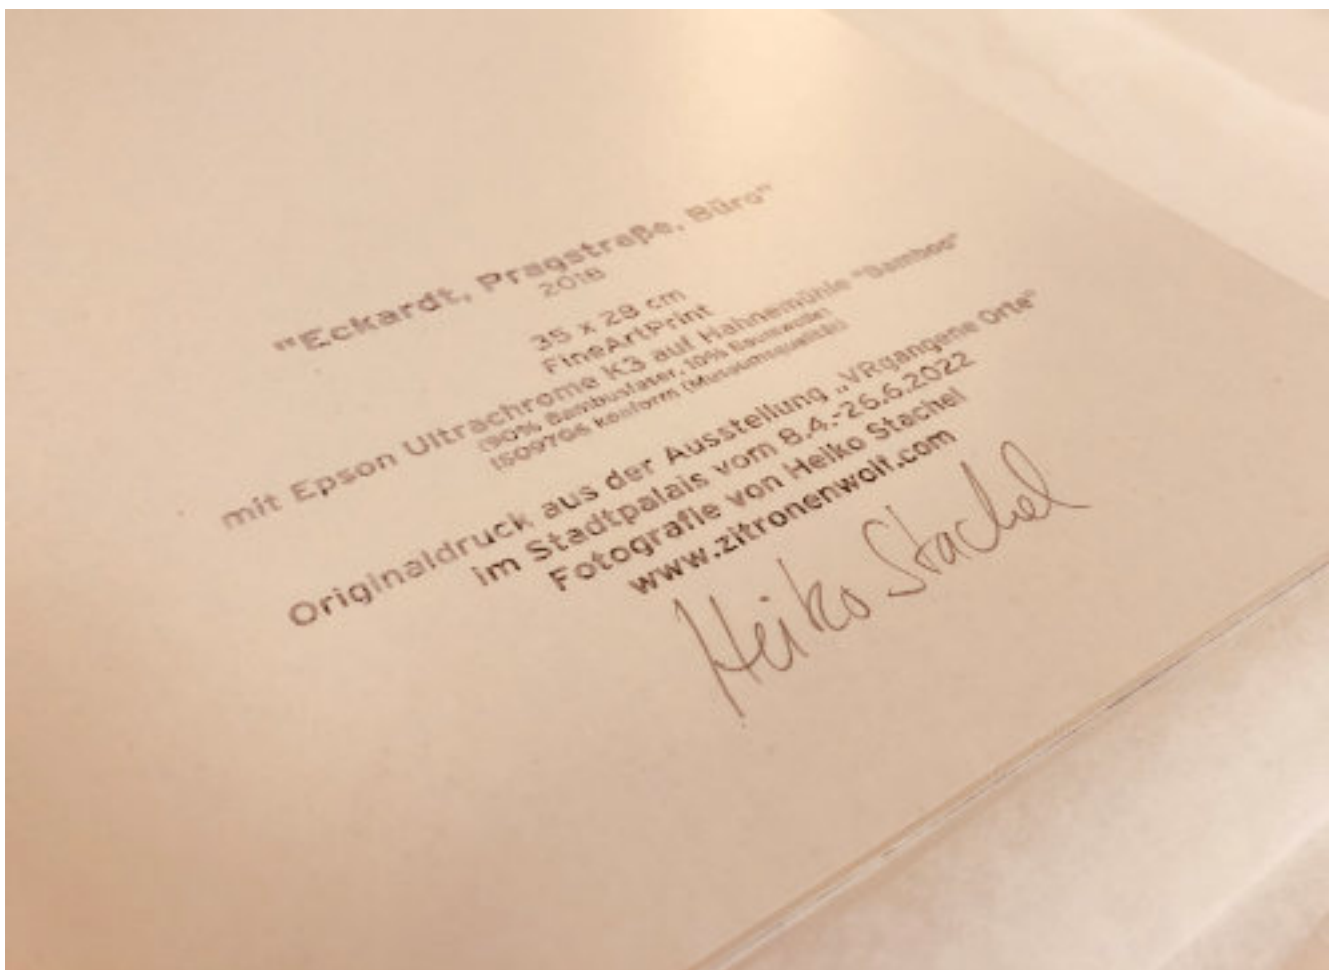 "Eckardt, Pragstraße, Büro"
2018
35 x 28 cm
FineArtPrint
mit Epson Ultrachrome K3 auf Hahnemühle "Bamboo"
(90% Bambusfaser, 10% Baumwolle)
ISO9706 konform (Museumsqualität)
Originaldruck aus der Ausstellung „VRgangene Orte"
im Stadtpalais vom 8.4.-26.6.2022
Fotografie von Heiko Stachel
www.zitronenwolf.com
Heiko Stachel